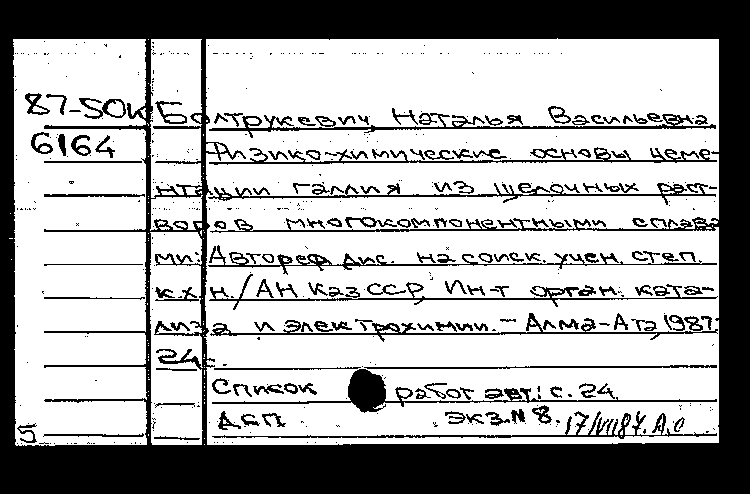 87-50К Болтрукевич, Наталья Васильевна
6164 Физико-химические основы цеме-
нтации галлия из щелочных раст-
воров многокомпонентными сплава
ми: Автореф. дис. на соиск. учен. степ.
к.х.н. / АН КазССР, Ин-т орган. ката-
лиза и электрохимии. - Алма-Ата, 1987.
24с.
Список работ авт.: с. 24
5 ДСП экз.N 8.